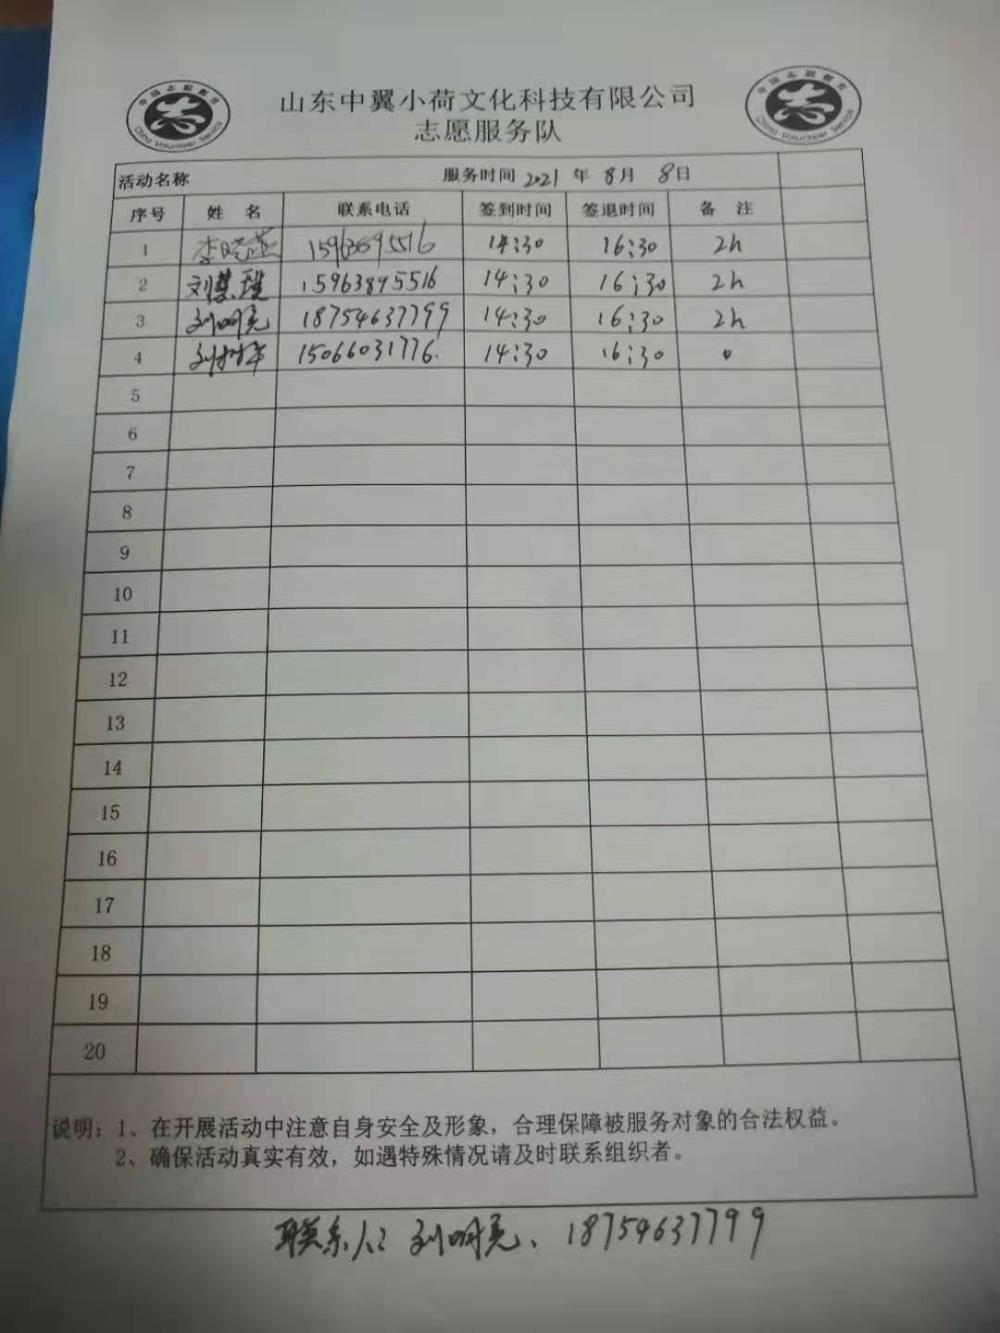 中国志愿服务
China Volunteer Service
山东中翼小荷文化科技有限公司
志愿服务队
中国志愿服务
China Volunteer Service
活动名称 服务时间 2021 年 8月 8日
序号 姓 名 联系电话 签到时间 签退时间 备 注
1 李晓燕 15963895516 14:30 16:30 2h
2 刘慧琪 15963895516 14:30 16:30 2h
3 刘明亮 18754637799 14:30 16:30 2h
4 15066031776. 14:30 16:30
5
6
7
8
9
10
11
12
13
14
15
16
17
18
19
20
说明:1、在开展活动中注意自身安全及形象,合理保障被服务对象的合法权益。
2、确保活动真实有效,如遇特殊情况请及时联系组织者。
联系人:刘明亮、18754637799